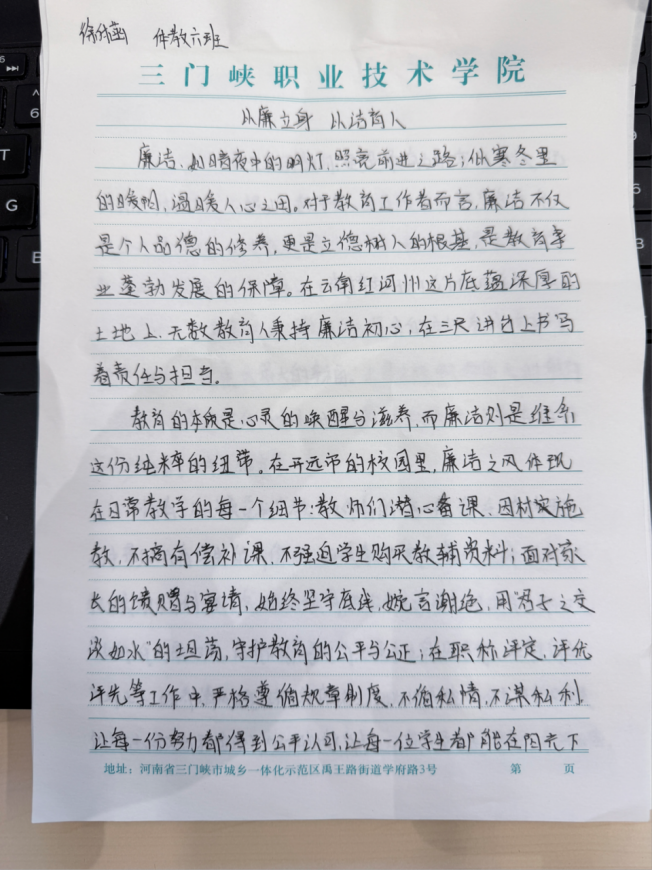 徐 体教六班
三门峡职业技术学院
从廉立身 从洁育人
廉洁,如暗夜中的明灯,照亮前进之路;似寒冬里
的暖阳,温暖人心之田。对于教育工作者而言,廉洁不仅
是个人品德的修养,更是立德树人的根基,是教育事
业蓬勃发展的保障。在云南红河州这片底蕴深厚的
土地上,无数教育人秉持廉洁初心,在三尺讲台上书写
着责任与担当。
教育的本质是心灵的唤醒与滋养,而廉洁则是维系
这份纯粹的纽带。在开远市的校园里,廉洁之风体现
在日常教学的每一个细节:教师们潜心备课、因材实施
教,不搞有偿补课,不强迫学生购买教辅资料;面对家
长的馈赠与宴请,始终坚守底线,婉言谢绝,用“君子之交
淡如水”的坦荡,守护教育的公平与公正;在职称评定、评优
评先等工作中,严格遵循规章制度,不徇私情,不谋私利,
让每一份努力都得到公平认可,让每一位学生都能在阳光下
地址:河南省三门峡市城乡一体化示范区禹王路街道学府路3号 第 页
⏎
>|
^
6
T
G
B